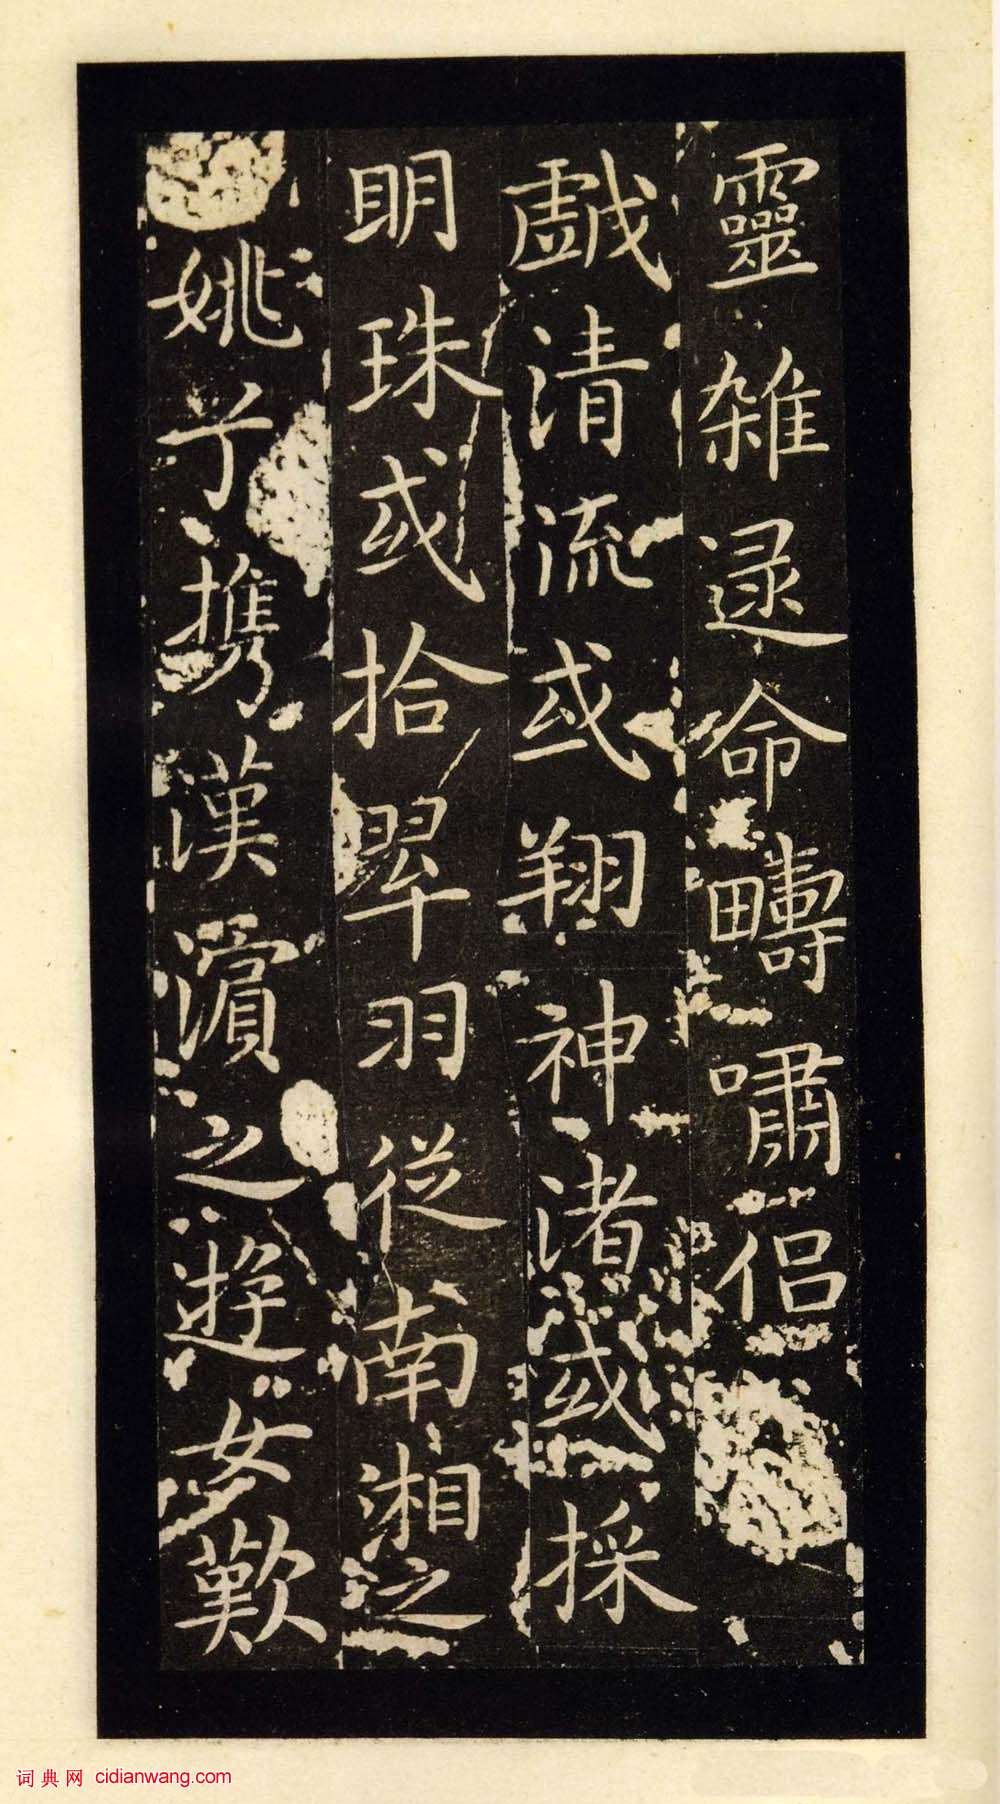 靈雜遝命疇嘯侶
戲清流或翔神渚或採
明珠或拾翠羽從南湘之
姚予攜漢濱之遊女歎
词典网 cidianwang.com